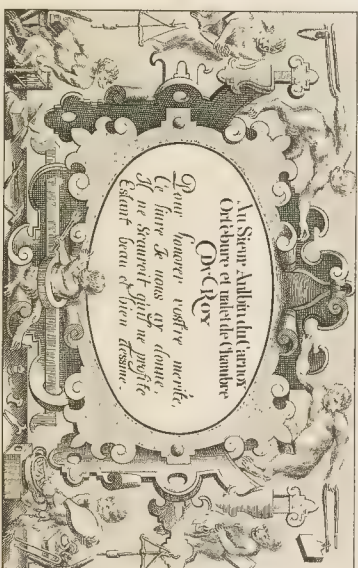 Au Sieur Aulbin du Carnoy
Orfebure et valet de Chambre
DU ROY
Pour honorer vostre merite,
Ce liure Je vous ay donne,
Il ne scauroit qu'il ne profite
Estant beau et bien dessine.